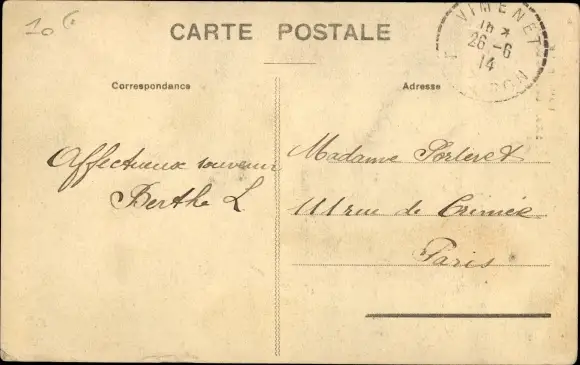 10 c
CARTE POSTALE
VIMENET
16 *
26 - 6
14
Correspondance
Adresse
Affectueux souvenir
Berthe L
Madame Porteret
111 rue de Crimée
Paris